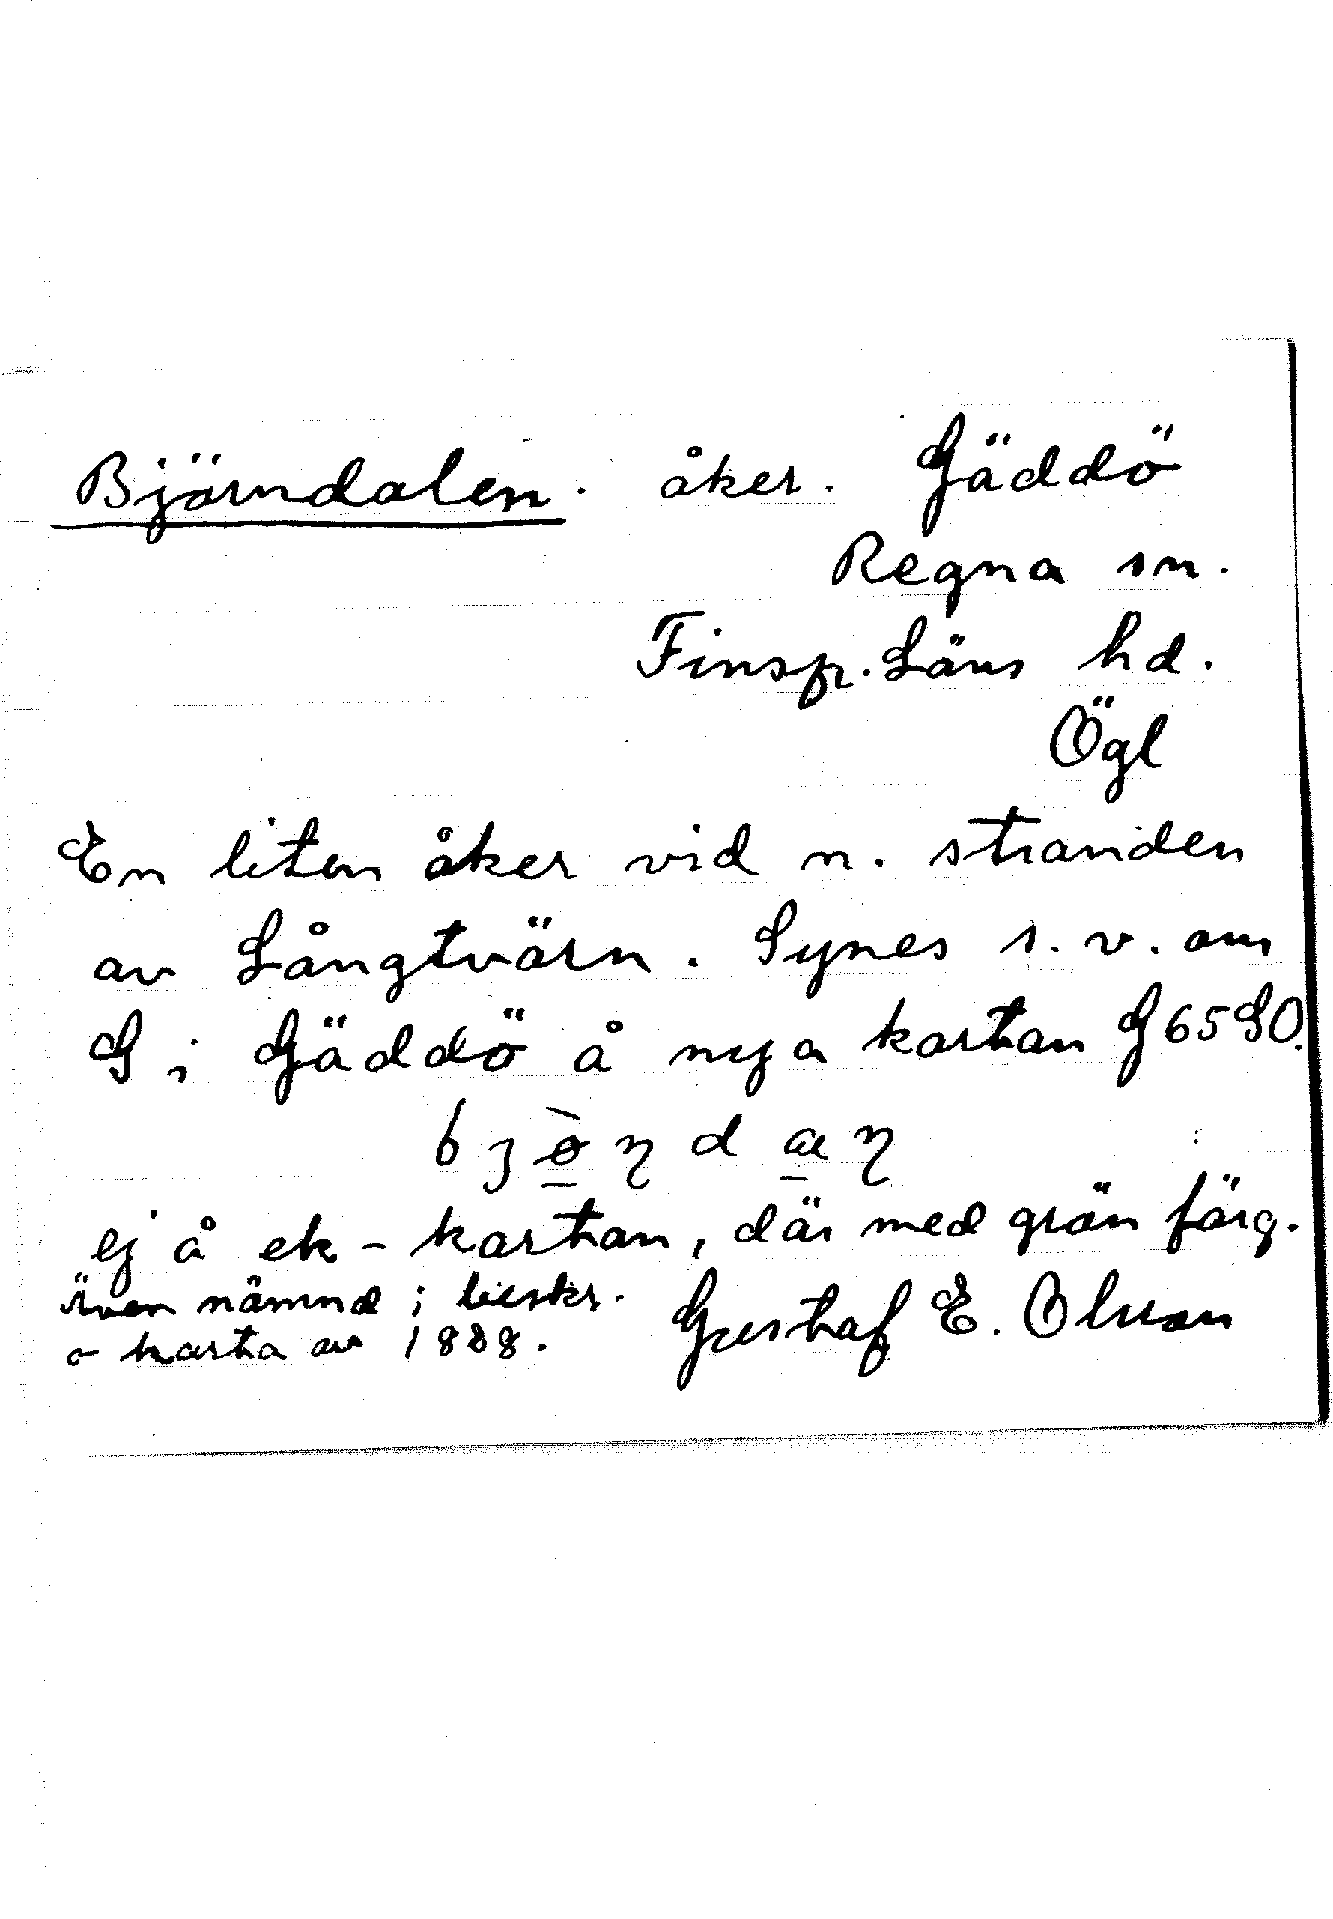 Björndalen. åker. Gäddö
Regna sn.
Finsp. Läns hd.
Ögl
En liten åker vid n. stranden
av Långtvärn. Synes s. v. om
G i Gäddö å nya kartan G65SO.
ej å ek-kartan, där med grön färg.
Även nämnd i beskr.
o karta av 1888.
Gustaf E. Olsson